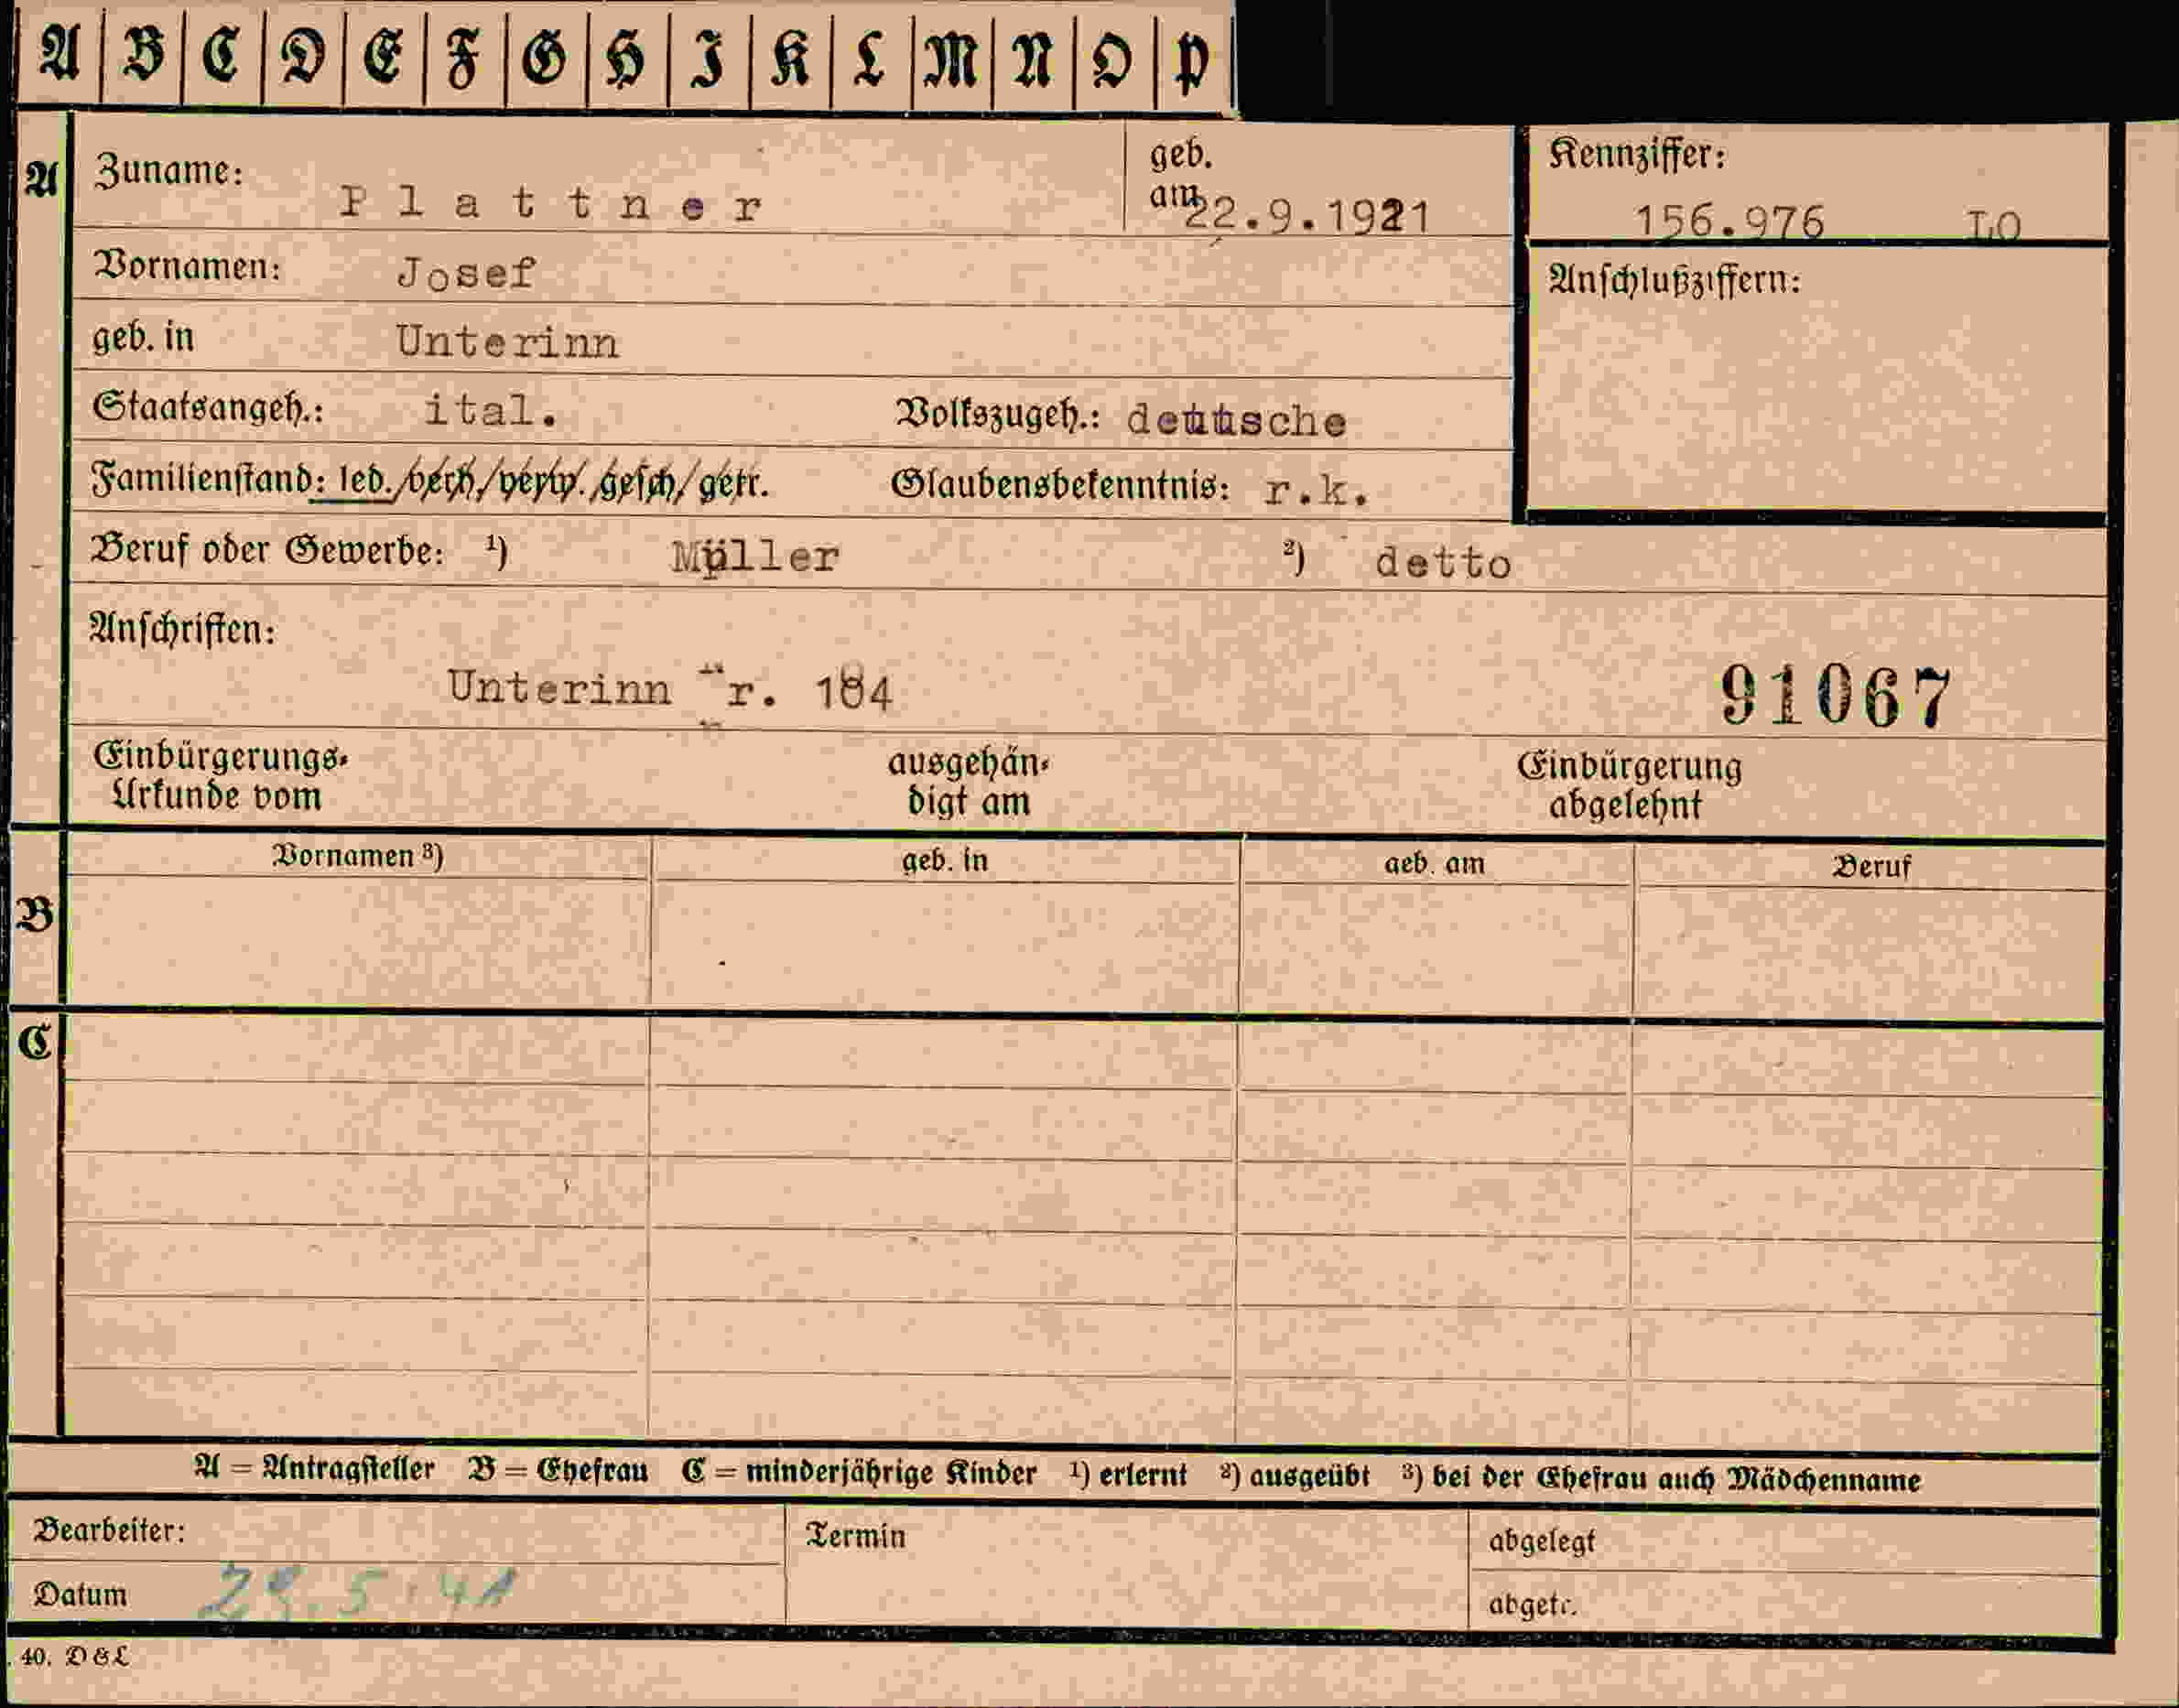 A B C D E F G H I K L M N O P
A Zuname: Plattner geb. am 22.9.1921 Kennziffer: 156.976 LO
Vornamen: Josef Anschlußziffern:
geb. in Unterinn
Staatsangeh.: ital. Volkszugeh.: deutsche
Familienstand: led./verh./verw./gesch/getr. Glaubensbekenntnis: r.k.
Beruf oder Gewerbe: ¹) Müller ²) detto
Anschriften:
Unterinn Nr. 184 91067
Einbürgerungs- ausgehän- Einbürgerung
Urkunde vom digt am abgelehnt
Vornamen ³) geb. in geb. am Beruf
B
C
A = Antragsteller B = Ehefrau C = minderjährige Kinder ¹) erlernt ²) ausgeübt ³) bei der Ehefrau auch Mädchenname
Bearbeiter: Termin abgelegt
Datum 29.5.41 abgetr.
40. D&L